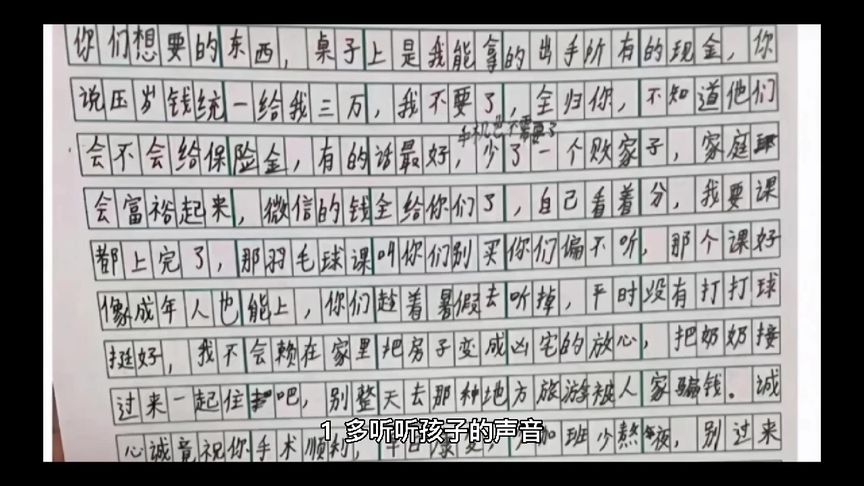 你们想要的东西，桌子上是我能拿的出手所有的现金，你
说压岁钱统一给我三万，我不要了，全归你，不知道他们
手机也不需要了
会不会给保险金，有的话最好，少了一个败家子，家庭
会富裕起来，微信的钱全给你们了，自己看着分，我要课
都上完了，那羽毛球课叫你们别买你们偏不听，那个课好
像成年人也能上，你们趁着暑假去听掉，平时没有打打球
挺好，我不会赖在家里把房子变成凶宅的放心，把奶奶接
过来一起住吧，别整天去那种地方旅游被人家骗钱。诚
心诚意祝你手术顺利，加班少熬夜，别过来
1 多听听孩子的声音